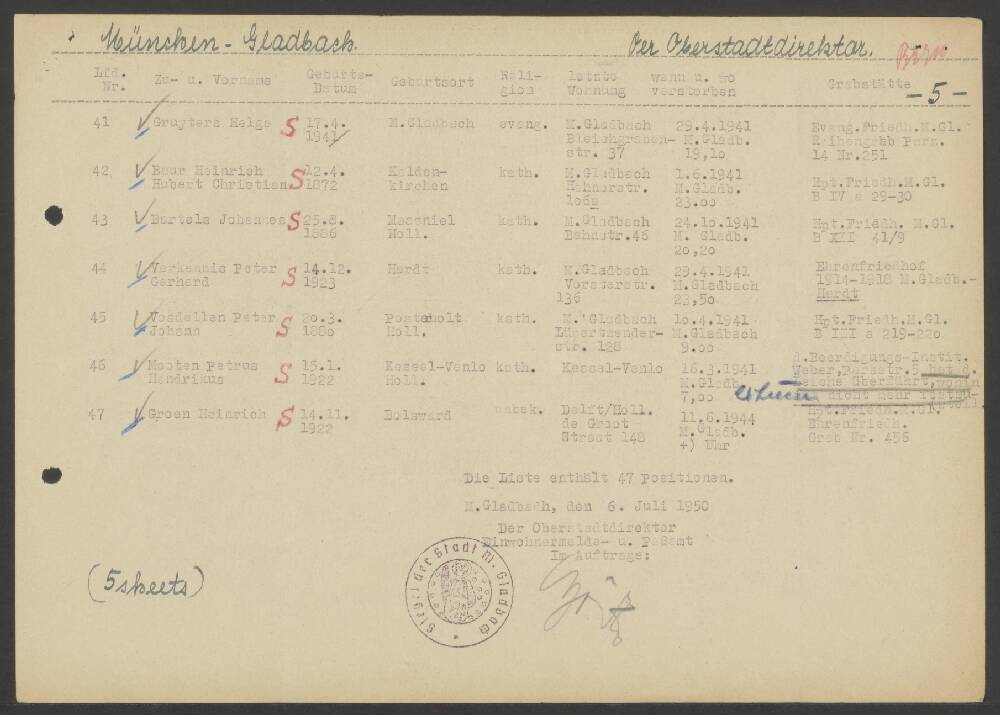 München-Gladbach. Der Oberstadtdirektor.
Lfd. Nr. Zu- u. Vorname Geburts-Datum Geburtsort Reli-gion letzte Wohnung wann u. wo verstorben Grabstätte
-5-
41 Gruyters Helga S 17.4. M.Gladbach evang. M.Gladbach 29.4.1941 Evang.Friedh.M.Gl.
1941 Bleichgraben- M.Gladb. Reihengrab Parz.
str. 37 19,10 14 Nr.251
42 Baur Heinrich S 12.4. Kalden- kath. M.Gladbach 1.6.1941 Hpt.Friedh.M.Gl.
Hubert Christian 1872 kirchen Hehnerstr. M.Gladb. B IV a 29-30
106a 23.00
43 Bartels Johannes S 25.8. kath. M.Gladbach 24.10.1941 Hpt.Friedh. M.Gl.
1886 Holl. Bahnstr.46 M. Gladb. B XII 41/9
20,20
44 Verkennis Peter S 14.12. Hardt kath. M.Gladbach 29.4.1941 Ehrenfriedhof
Gerhard 1923 Vorsterstr. M.Gladbach 1914-1918 M.Gladb.-
136 23,50 Hardt
45 Vosdellen Peter S 20.3. Posterholt kath. M.Gladbach 10.4.1941 Hpt.Friedh.M.Gl.
Johann 1880 Holl. M.Gladbach B III a 219-220
str. 128 9.00
46 Petrus S 15.1. Kessel-Venlo kath. Kessel-Venlo 16.3.1941 d.Beerdigungs-Instit.
Hendrikus 1922 Holl. M.Gladb. Weber, hat d.
7,00 Leiche überführt, wohin
nicht mehr festzu-
stell.
47 Groen Heinrich S 14.11. Bolsward unbek. Delft/Holl. 11.6.1944 Hpt.Friedh.M.Gl.
1922 de Groot M.Gladb. Ehrenfriedh.
Straat 148 +) Uhr Grab Nr. 456
Die Liste enthält 47 Positionen.
M.Gladbach, den 6. Juli 1950
Der Oberstadtdirektor
Einwohnermelde- u. Paßamt
Im Auftrage:
(5 sheets)
Siegel der Stadt M. Gladbach